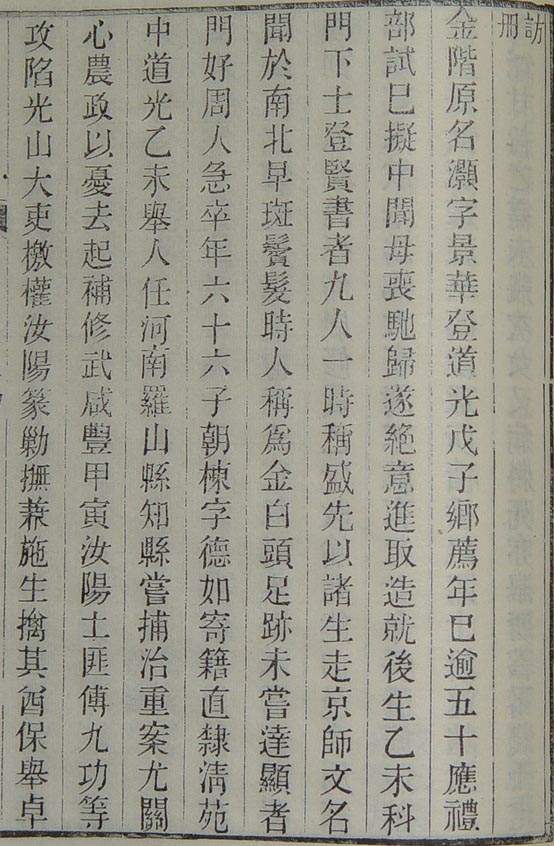 訪
冊
金階原名灝字景華登道光戊子鄉薦年巳逾五十應禮
部試巳擬中聞母喪馳歸遂絕意進取造就後生乙未科
門下士登賢書者九人一時稱盛先以諸生走京師文名
聞於南北早斑鬢髮時人稱爲金白頭足跡未嘗達顯者
門好周人急卒年六十六子朝棟字德如寄籍直隸淸苑
中道光乙未舉人任河南羅山縣知縣嘗捕治重案尤關
心農政以憂去起補修武咸豐甲寅汝陽土匪傅九功等
攻陷光山大吏檄權汝陽篆勦撫兼施生擒其酋保舉卓